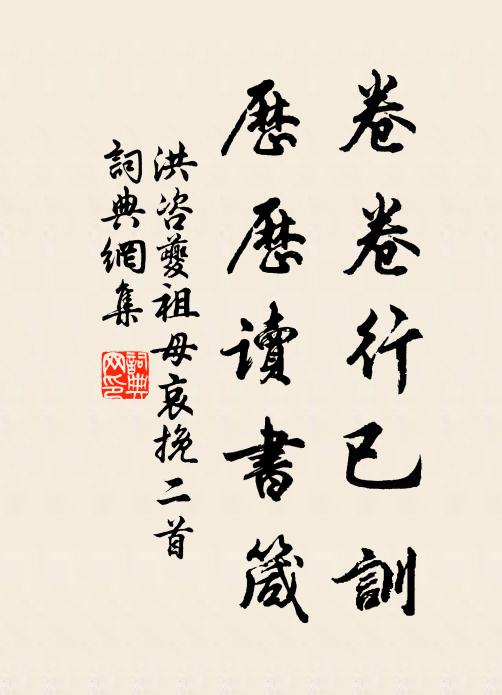 卷卷行已訓
歷歷讀書箴
洪咨夔祖母哀挽二首
詞典網集
詞典
网印